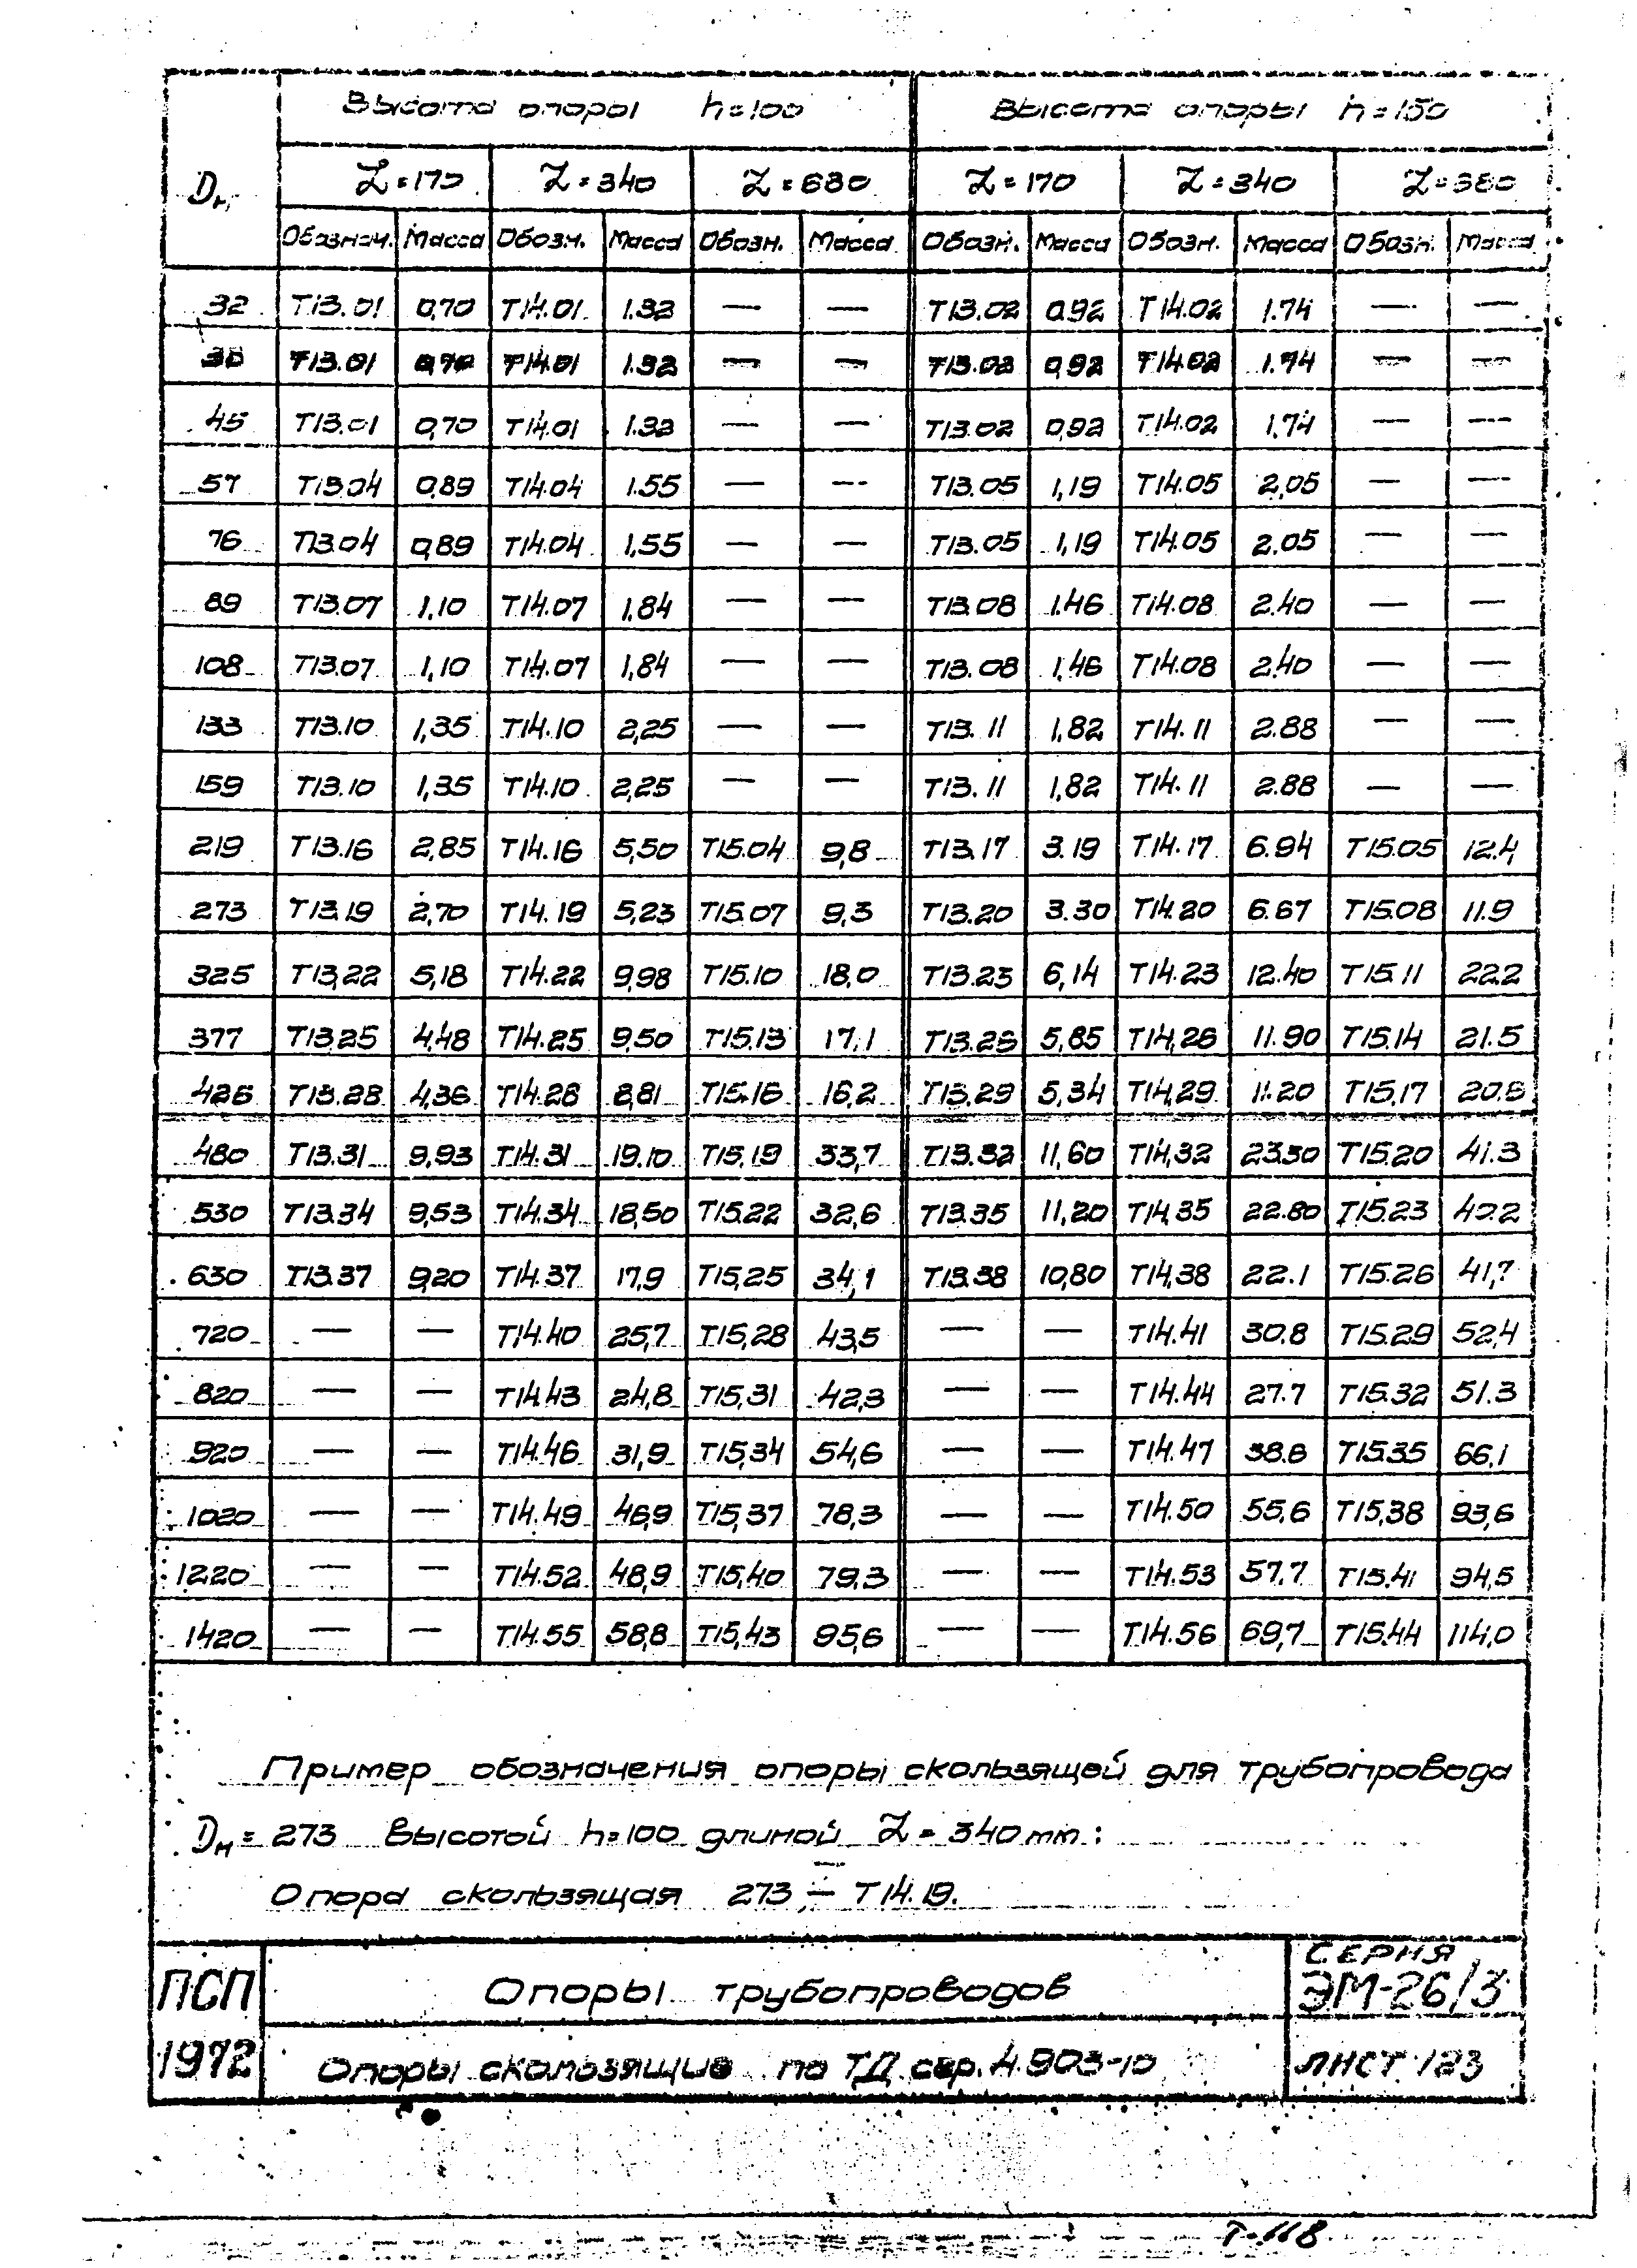 Высота опоры h=100 Высота опоры h=150
Dн L=170 L=340 L=680 L=170 L=340 L=680
Обознач. Масса Обозн. Масса Обозн. Масса Обозн. Масса Обозн. Масса Обозн. Масса
32 Т13.01 0,70 Т14.01 1.32 — — Т13.02 0,92 Т14.02 1.74 — —
Т13.01 0,70 Т14.01 1.32 — — Т13.02 0,92 Т14.02 1.74 — —
45 Т13.01 0,70 Т14.01 1.32 — — Т13.02 0,92 Т14.02 1,74 — —
57 Т13.04 0,89 Т14.04 1.55 — — Т13.05 1,19 Т14.05 2,05 — —
76 Т13.04 0,89 Т14.04 1,55 — — Т13.05 1,19 Т14.05 2.05 — —
89 Т13.07 1,10 Т14.07 1,84 — — Т13.08 1.46 Т14.08 2.40 — —
108 Т13.07 1,10 Т14.07 1,84 — — Т13.08 1,46 Т14.08 2.40 — —
133 Т13.10 1,35 Т14.10 2,25 — — Т13.11 1,82 Т14.11 2.88 — —
159 Т13.10 1,35 Т14.10 2,25 — — Т13.11 1,82 Т14.11 2.88 — —
219 Т13.16 2,85 Т14.16 5,50 Т15.04 9,8 Т13.17 3.19 Т14.17 6.94 Т15.05 12.4
273 Т13.19 2,70 Т14.19 5,23 Т15.07 9,3 Т13.20 3.30 Т14.20 6.67 Т15.08 11.9
325 Т13,22 5,18 Т14.22 9,98 Т15.10 18,0 Т13.23 6,14 Т14.23 12.40 Т15.11 22.2
377 Т13.25 4,48 Т14.25 9,50 Т15.13 17,1 Т13.26 5,85 Т14,26 11.90 Т15.14 21.5
426 Т13.28 4,36 Т14.28 8,81 Т15.16 16,2 Т13.29 5,34 Т14,29 11.20 Т15,17
480 Т13.31 9,93 Т14.31 19.10 Т15,19 33,7 Т13.32 11,60 Т14,32 23.30 Т15.20 41.3
530 Т13.34 9,53 Т14.34 18,50 Т15.22 32,6 Т13.35 11,20 Т14.35 22.80 Т15.23 40.2
630 Т13.37 9,20 Т14.37 17,9 Т15,25 34,1 Т13.38 10,80 Т14,38 22.1 Т15.26 41,7
720 — — Т14.40 25,7 Т15,28 43,5 — — Т14.41 30.8 Т15.29 52,4
820 — — Т14.43 24,8 Т15,31 42,3 — — Т14.44 27.7 Т15.32 51.3
920 — — Т14.46 31,9 Т15,34 54,6 — — Т14.47 38.8 Т15.35 66,1
1020 — — Т14.49 46,9 Т15,37 78,3 — — Т14.50 55,6 Т15,38 93,6
1220 — — Т14.52 48,9 Т15,40 79.3 — — Т14.53 57.7 Т15.41 94,5
1420 — — Т14.55 58,8 Т15,43 95,6 — — Т14.56 69,7 Т15.44 114,0
Пример обозначения опоры скользящей для трубопровода
Dн = 273 высотой h=100 длиной L = 340 mm:
Опора скользящая 273 — Т14.19.
ПСП
1972
Опоры трубопроводов
Опоры скользящие по ТД сер. 4.903-10
СЕРИЯ
ЭМ-26/3
ЛИСТ 123
Т-118